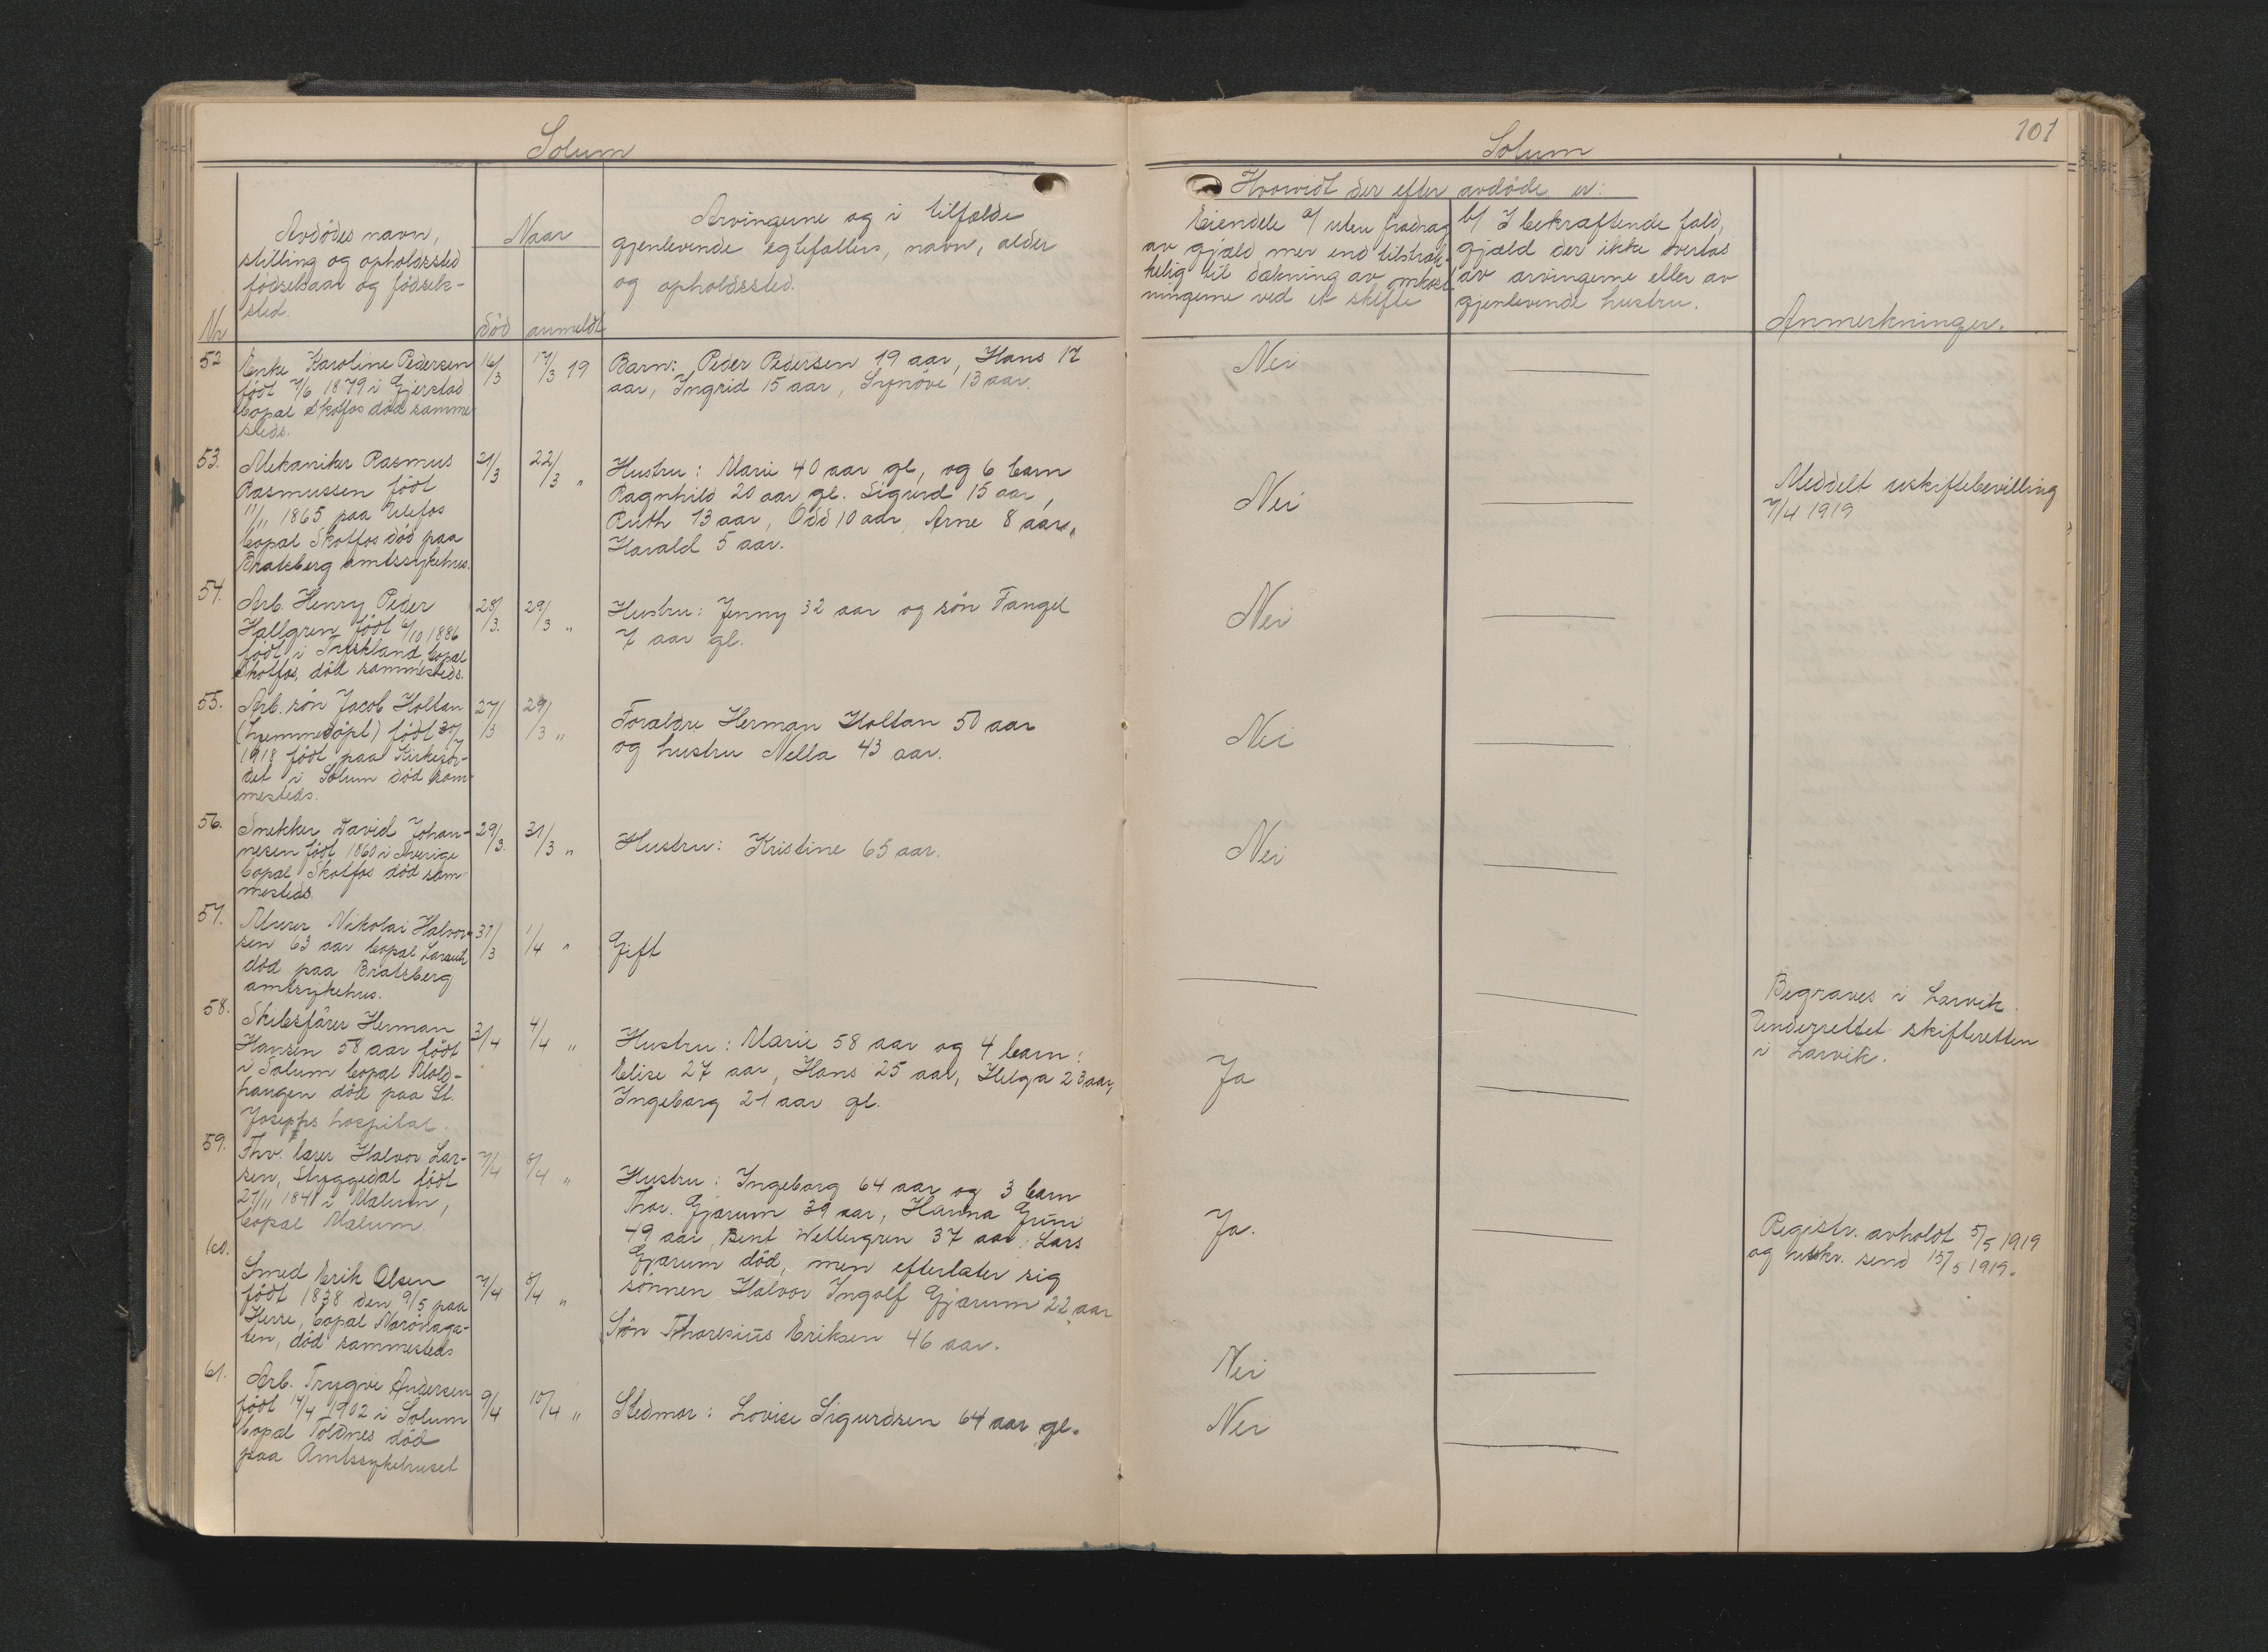 Solum
Nr
Avdödes navn,
stilling og opholdssted
fødselsaar og födsels-
sted.
Naar
död
anmeldt
Arvingerne og i tilfælde
gjenlevende egtefællers, navn, alder
og opholdssted.
52
Enke Karoline Pedersen
født 7/6 1879 i Gjerstad
bopæl Skotfos død samme
steds.
16/3
17/3 19
Barn: Peder Pedersen 19 aar, Hans 17
aar, Ingrid 15 aar, Synöve 13 aar.
53.
Mekaniker Rasmus
Rasmussen født
11/11 1865 paa Ulefos
bopæl Skotfos död paa
Bratsberg amtssykehus.
21/3
22/3 "
Hustru: Marie 40 aar gl, og 6 barn
Ragnhild 20 aar gl. Sigurd 15 aar,
Ruth 13 aar, Odd 10 aar, Arne 8 aar,
Harald 5 aar.
54.
Arb. Henry Peder
Hallgren født 6/10 1886
født i Tyskland, bopæl
Skotfos, död sammesteds.
28/3.
29/3 "
Hustru: Jenny 32 aar og sön Fangel
7 aar gl.
55.
Arb. sön Jacob Holtan
(hjemmedöpt) födt 30/7
1918 födt paa Kirkejor-
det i Solum död sam-
mesteds.
27/3
29/3 "
Forældre Herman Holtan 50 aar
og hustru Nella 43 aar.
56.
Snekker David Johan-
nesen født 1860 i Sverige
bopæl Skotfos död sam
mesteds.
29/3.
31/3 "
Hustru: Kristine 65 aar.
57.
Murer Nikolai Halvor-
sen 63 aar bopæl Larvik
död paa Bratsberg
amtsykehus.
31/3
1/4 "
Gift
58.
Skibsfører Herman
Hansen 58 aar født
i Solum bopæl Mold-
haugen död paa St.
Josephs hospital.
3/4
4/4 "
Hustru: Marie 58 aar og 4 barn:
Elise 27 aar, Hans 25 aar, Helga 23 aar,
Ingeborg 21 aar gl.
59.
Fhv. lærer Halvor Lar-
sen, Styggedal födt
27/11 1841 i Mælum,
bopæl Mælum.
7/4
8/4 "
Hustru: Ingeborg 64 aar og 3 barn
Thor. Gjærum 39 aar, Hanna Grini
49 aar, Bent Wettergren 37 aar: Lars
Gjærum död, men efterlater sig
sönnen Halvor Ingolf Gjærum 22 aar
60.
Smed Erik Olsen
født 1838 den 9/5 paa
Herre, bopæl Nordhaga-
ten, död sammesteds
7/4
8/4 "
Sön Thoresius Eriksen 46 aar.
61.
Arb. Trygve Andersen
født 14/4 1902 i Solum
bopæl Toldnes död
paa Amtssykehuset
9/4
10/4 "
Stedmor: Lovise Sigurdsen 64 aar gl.
Solum
101
Hvorvidt der efter avdöde er:
Eiendele a/ uten fradrag
av gjæld mer end tilstræk-
kelig til dækning av omkost
ningerne ved et skifte
b/ I bekræftende fald,
gjæld der ikke overtas
av arvingerne eller av
gjenlevende hustru.
Anmerkninger.
Nei
Nei
Meddelt uskiftebevilling
7/4 1919
Nei
Nei
Nei
Begraves i Larvik.
Underrettet skifteretten
i Larvik.
Ja
Ja.
Registr. avholdt 5/5 1919
og utskr. send 15/5 1919.
Nei
Nei